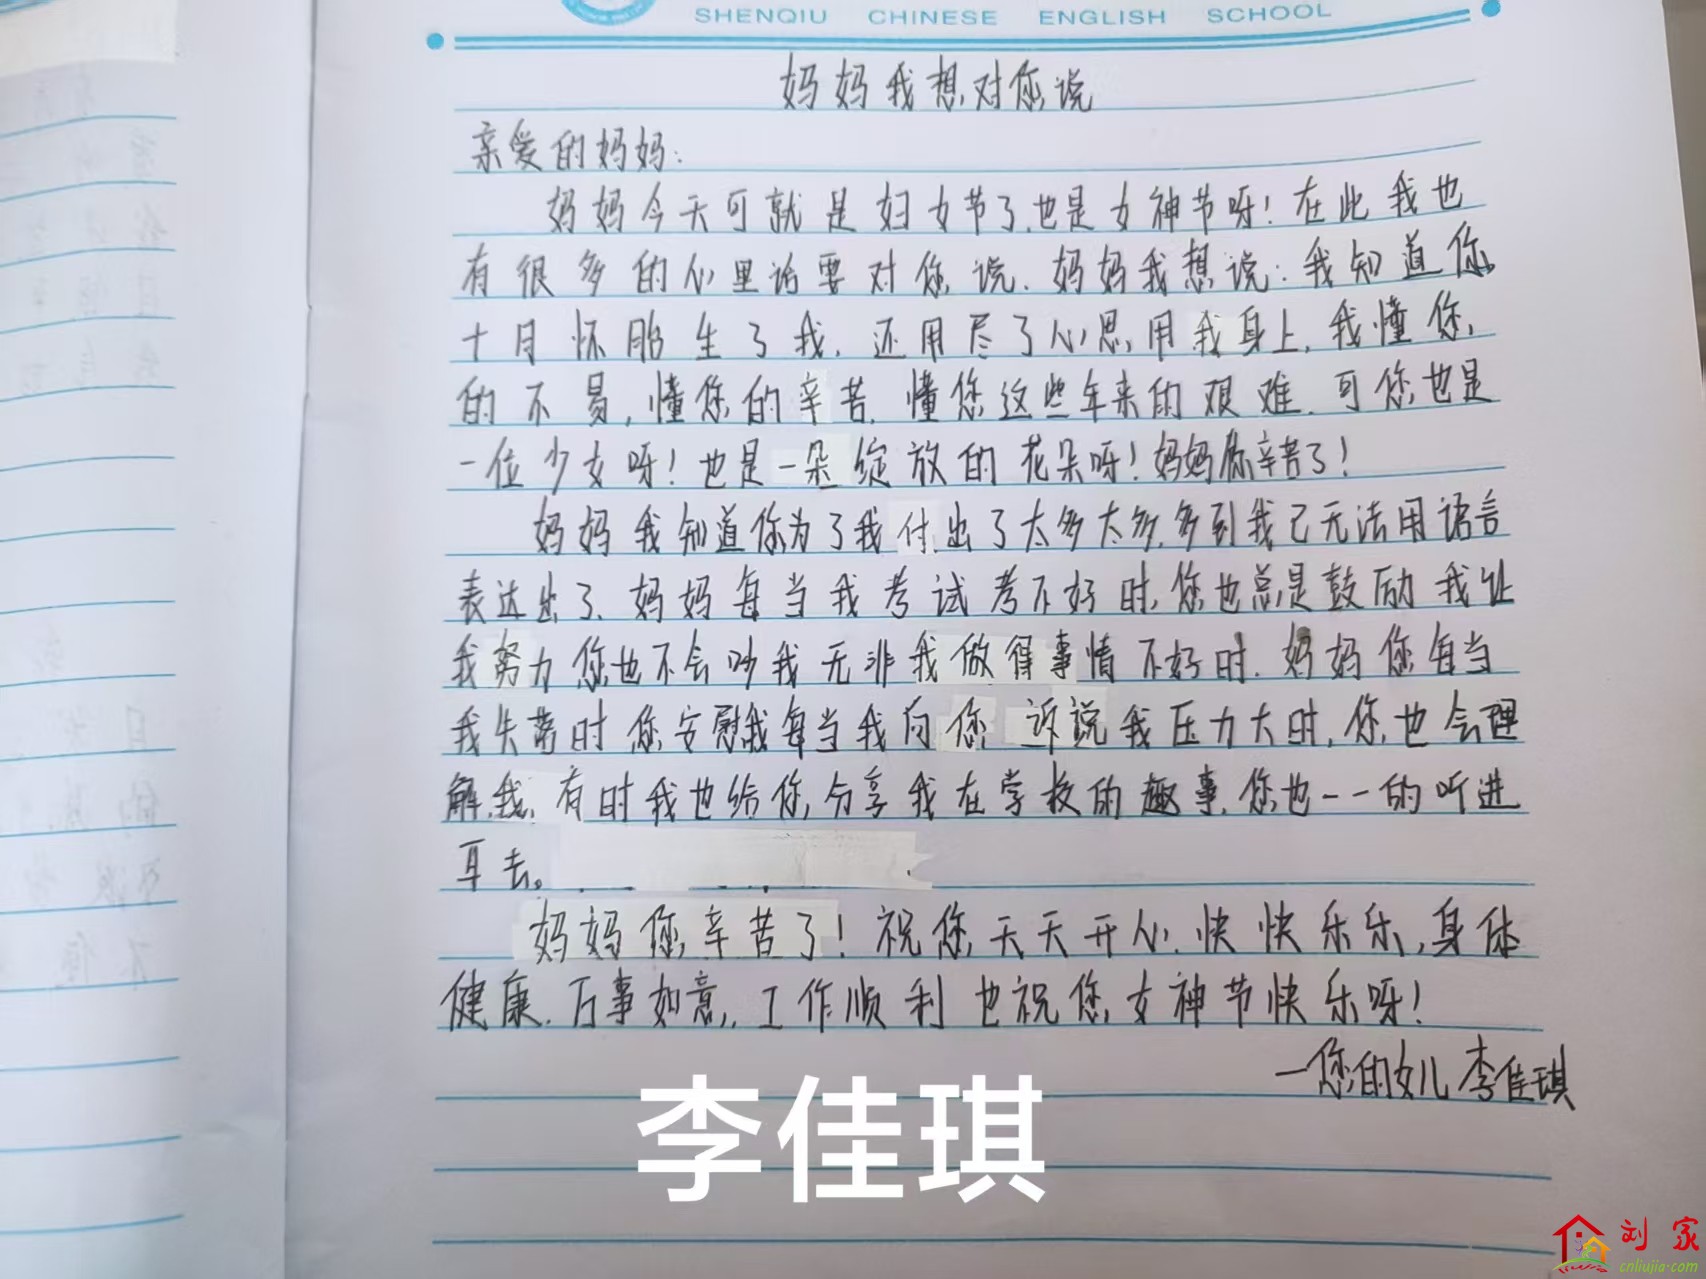 SHENQIU CHINESE ENGLISH SCHOOL
妈妈我想对您说
亲爱的妈妈:
妈妈今天可就是妇女节了,也是女神节呀!在此我也
有很多的心里话要对您说.妈妈我想说:我知道您
十月怀胎生了我,还用尽了心思,用我身上,我懂您,
的不易,懂您的辛苦,懂您这些年来的艰难.可您也是
一位少女呀!也是一朵绽放的花朵呀!妈妈你辛苦了!
妈妈我知道你为了我付出了太多太多,多到我已无法用语言
表达出了、妈妈每当我考试考不好时,您也总是鼓励我让
我努力您也不会吵我无非我做得事情不好时.妈妈您每当
我失落时,您安慰我每当我向您诉说我压力大时,您也会理
解我,有时我也给您分享我在学校的趣事,您也一一的听进
耳去。
妈妈您辛苦了!祝您天天开心,快快乐乐,身体
健康,万事如意,工作顺利也祝您女神节快乐呀!
—您的女儿李佳琪
李佳琪
刘家
cnliujia.com